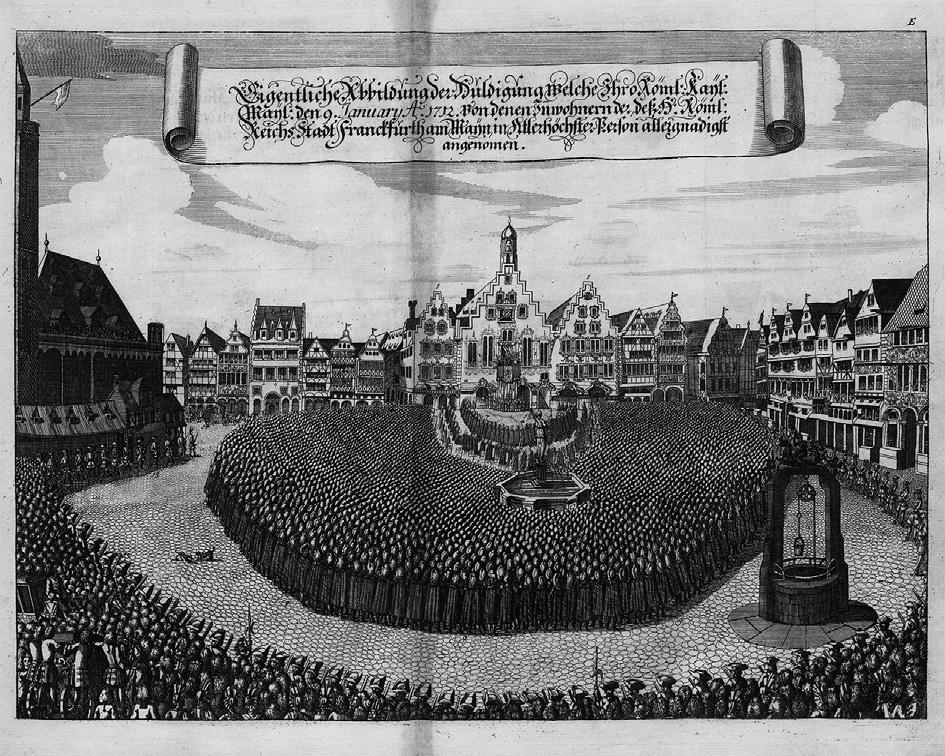 E
Eigentliche Abbildung der Huldigung, welche Ihro Röml: Käyl:
Mayl: den 9. January Aº. 1712. von denen Inwohnern der deß H. Röml:
Reichs Stadt Franckfurth am Mayn, in Allerhöchster Person allergnädigst
angenomen.